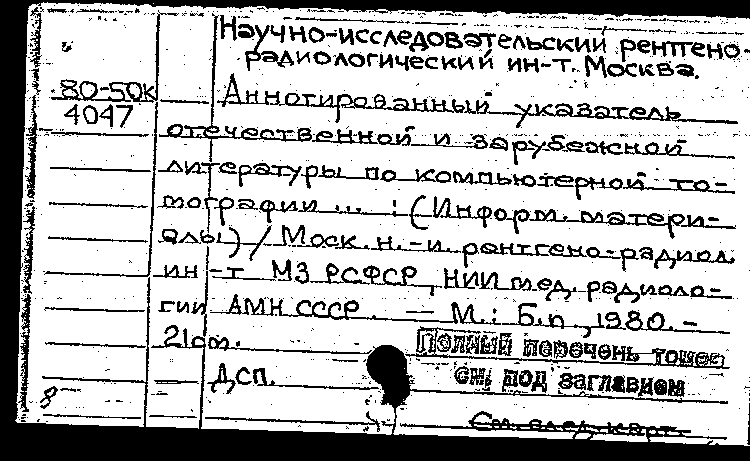 Научно-исследовательский рентгено-
радиологический ин-т. Москва.
80-50к
4047
Аннотированный указатель
отечественной и зарубежной
литературы по компьютерной то-
мографии ... : (Информ. матери-
алы) / Моск. н.-и. рентгено-радиол.
ин-т МЗ РСФСР, НИИ мед. радиоло-
гии АМН СССР. — М.: Б.и, 1980. -
21см.
Полный перечень томов
см. под заглавием
ДСП.
8
См. след. карт.